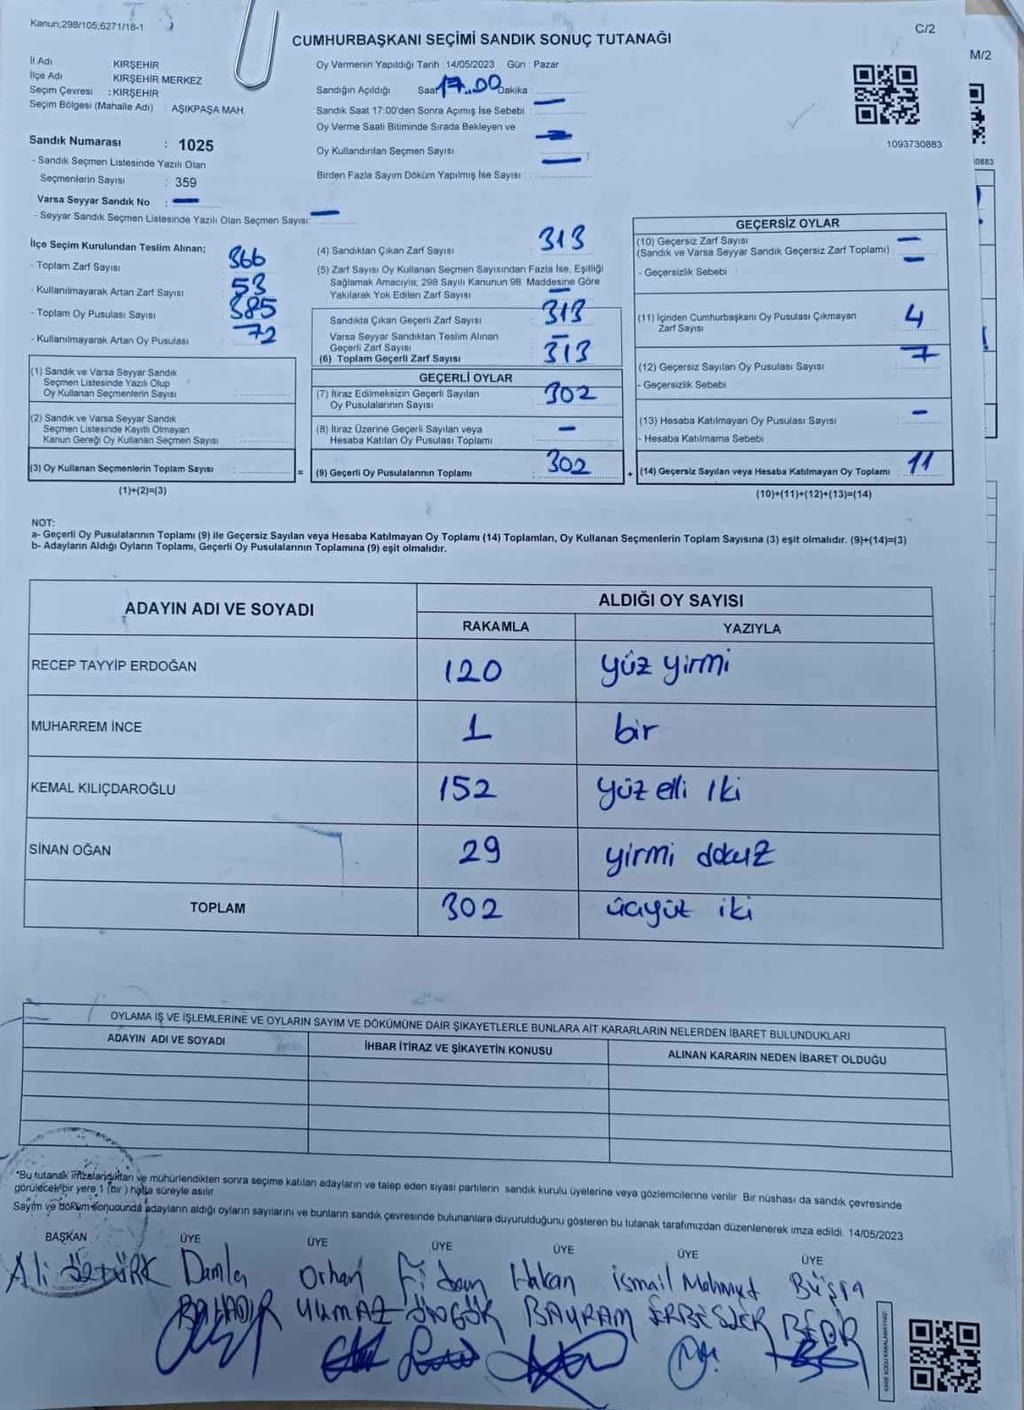 Kanun;298/105;6271/18-1
C/2
CUMHURBAŞKANI SEÇİMİ SANDIK SONUÇ TUTANAĞI
M/2
İl Adı : KIRŞEHİR
İlçe Adı : KIRŞEHİR MERKEZ
Seçim Çevresi : KIRŞEHİR
Seçim Bölgesi (Mahalle Adı) : AŞIKPAŞA MAH.
Oy Vermenin Yapıldığı Tarih :14/05/2023 Gün : Pazar
Sandığın Açıldığı Saat 17.00 Dakika :
Sandık Saat 17:00'den Sonra Açımış İse Sebebi : —
Oy Verme Saati Bitiminde Sırada Bekleyen ve
Oy Kullandırılan Seçmen Sayısı : —
Birden Fazla Sayım Döküm Yapılmış İse Sayısı : —
1093730883
0883
Sandık Numarası : 1025
- Sandık Seçmen Listesinde Yazılı Olan
Seçmenlerin Sayısı : 359
Varsa Seyyar Sandık No : —
- Seyyar Sandık Seçmen Listesinde Yazılı Olan Seçmen Sayısı: —
İlçe Seçim Kurulundan Teslim Alınan;
- Toplam Zarf Sayısı : 366
- Kullanılmayarak Artan Zarf Sayısı : 53
- Toplam Oy Pusulası Sayısı : 385
- Kullanılmayarak Artan Oy Pusulası : 72
(1) Sandık ve Varsa Seyyar Sandık
Seçmen Listesinde Yazılı Olup
Oy Kullanan Seçmenlerin Sayısı :
(2) Sandık ve Varsa Seyyar Sandık
Seçmen Listesinde Kayıtlı Olmayan
Kanun Gereği Oy Kullanan Seçmen Sayısı :
(3) Oy Kullanan Seçmenlerin Toplam Sayısı :
(1)+(2)=(3)
(4) Sandıktan Çıkan Zarf Sayısı : 313
(5) Zarf Sayısı Oy Kullanan Seçmen Sayısından Fazla İse, Eşitliği
Sağlamak Amacıyla; 298 Sayılı Kanunun 98. Maddesine Göre
Yakılarak Yok Edilen Zarf Sayısı : —
Sandıkta Çıkan Geçerli Zarf Sayısı : 313
Varsa Seyyar Sandıktan Teslim Alınan
Geçerli Zarf Sayısı : —
(6) Toplam Geçerli Zarf Sayısı : 313
GEÇERLİ OYLAR
(7) İtiraz Edilmeksizin Geçerli Sayılan
Oy Pusulalarının Sayısı : 302
(8) İtiraz Üzerine Geçerli Sayılan veya
Hesaba Katılan Oy Pusulası Toplamı : —
= (9) Geçerli Oy Pusulalarının Toplamı : 302
GEÇERSİZ OYLAR
(10) Geçersiz Zarf Sayısı : —
(Sandık ve Varsa Seyyar Sandık Geçersiz Zarf Toplamı) —
- Geçersizlik Sebebi :
(11) İçinden Cumhurbaşkanı Oy Pusulası Çıkmayan
Zarf Sayısı : 4
(12) Geçersiz Sayılan Oy Pusulası Sayısı : 7
- Geçersizlik Sebebi :
(13) Hesaba Katılmayan Oy Pusulası Sayısı : —
- Hesaba Katılmama Sebebi :
+ (14) Geçersiz Sayılan veya Hesaba Katılmayan Oy Toplamı : 11
(10)+(11)+(12)+(13)=(14)
NOT:
a- Geçerli Oy Pusulalarının Toplamı (9) ile Geçersiz Sayılan veya Hesaba Katılmayan Oy Toplamı (14) Toplamları, Oy Kullanan Seçmenlerin Toplam Sayısına (3) eşit olmalıdır. (9)+(14)=(3)
b- Adayların Aldığı Oyların Toplamı, Geçerli Oy Pusulalarının Toplamına (9) eşit olmalıdır.
ADAYIN ADI VE SOYADI
ALDIĞI OY SAYISI
RAKAMLA YAZIYLA
RECEP TAYYİP ERDOĞAN 120 yüz yirmi
MUHARREM İNCE 1 bir
KEMAL KILIÇDAROĞLU 152 yüz elli iki
SİNAN OĞAN 29 yirmi dokuz
TOPLAM 302 üçyüz iki
OYLAMA İŞ VE İŞLEMLERİNE VE OYLARIN SAYIM VE DÖKÜMÜNE DAİR ŞİKAYETLERLE BUNLARA AİT KARARLARIN NELERDEN İBARET BULUNDUKLARI
ADAYIN ADI VE SOYADI İHBAR İTİRAZ VE ŞİKAYETİN KONUSU ALINAN KARARIN NEDEN İBARET OLDUĞU
*Bu tutanak imzalandıktan ve mühürlendikten sonra seçime katılan adayların ve talep eden siyasi partilerin sandık kurulu üyelerine veya gözlemcilerine verilir. Bir nüshası da sandık çevresinde
görülecek bir yere 1 (bir) hafta süreyle asılır.
Sayım ve döküm sonucunda adayların aldığı oyların sayılarını ve bunların sandık çevresinde bulunanlara duyurulduğunu gösteren bu tutanak tarafımızdan düzenlenerek imza edildi. 14/05/2023
BAŞKAN ÜYE ÜYE ÜYE ÜYE ÜYE ÜYE
Ali ÖZTÜRK Damla Orhan Fidan Hakan ismail Mahmut Büşra
BAHADIR YILMAZ ÖNGÖK BAYRAM BEDİR